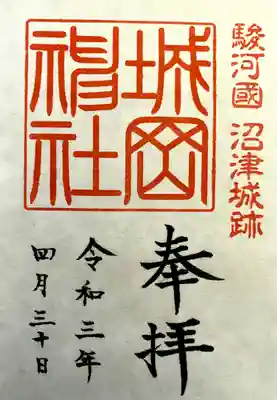 駿河國 沼津城跡
奉拝
城岡神社
令和三年
四月三十日